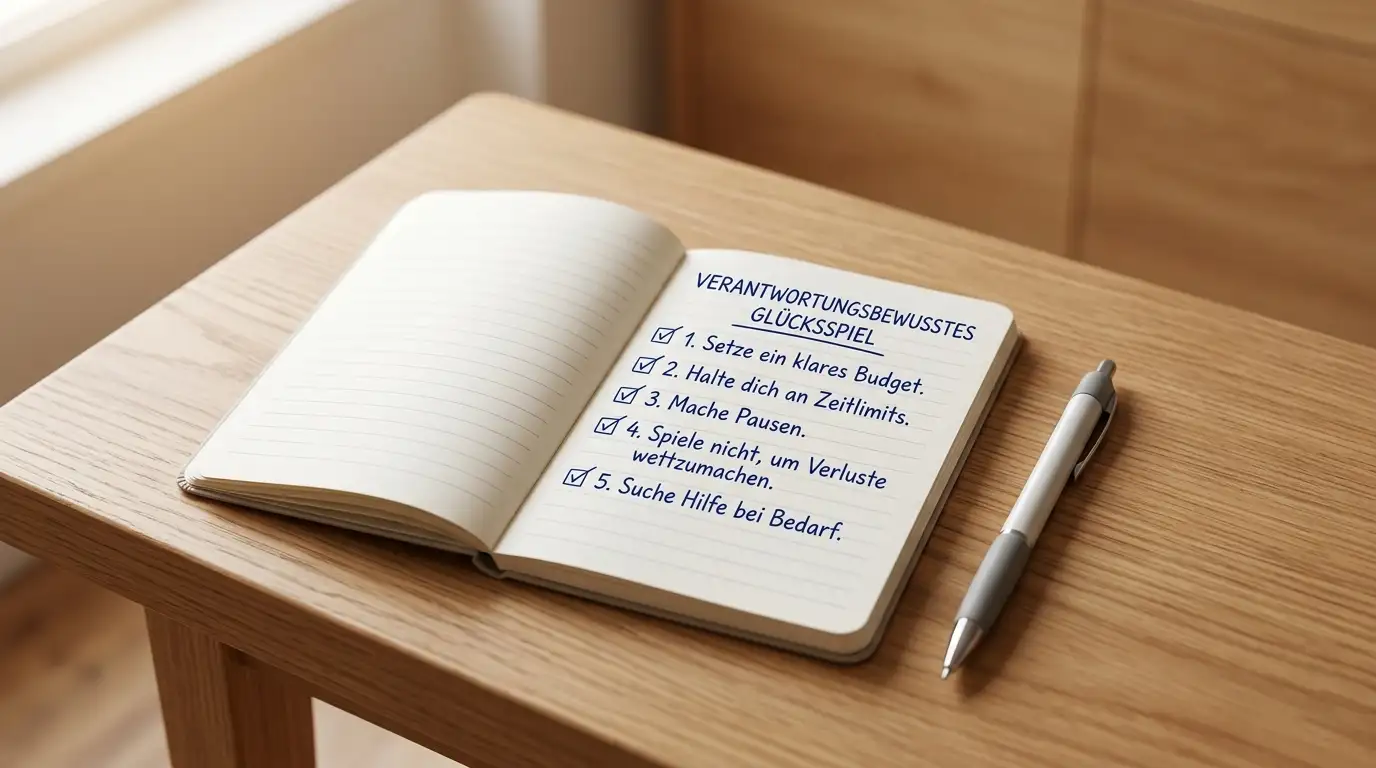 VERANTWORTUNGSBEWUSSTES
GLÜCKSSPIEL
☑ 1. Setze ein klares Budget.
☑ 2. Halte dich an Zeitlimits.
☑ 3. Mache Pausen.
☑ 4. Spiele nicht, um Verluste
wettzumachen.
☑ 5. Suche Hilfe bei Bedarf.